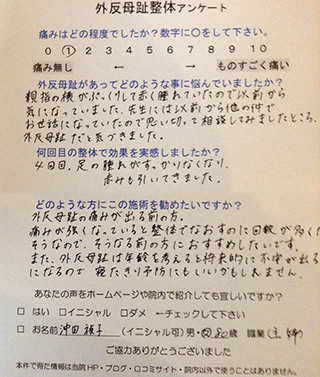 外反母趾整体アンケート
痛みはどの程度でしたか？数字に○をして下さい。
0 1 2 3 4 5 6 7 8 9 10
痛み無し ← → ものすごく痛い
外反母趾があってどのような事に悩んでいましたか？
親指の横がぷっくりして赤く腫れていたので以前から
気になっていました。先生には以前から他の件で
お世話になっていたので思い切って相談してみましたところ、
外反母趾だと気づきました。
何回目の整体で効果を実感しましたか？
4回目、足の腫れがすっかりなくなり、
赤みも引いてきました。
どのような方にこの施術を勧めたいですか？
外反母趾の痛みが出る前の方。
痛みが強くなっていると整体でなおすのに回数が多く
そうなので、そうなる前の方におすすめしたいです。
また、外反母趾は年齢も考えると将来的に不安が出る
になるので 寝たきり予防にもいいかもしれません。
あなたの声をホームページや院内で紹介しても宜しいですか？
□ はい □イニシャル □ダメ ←チェックして下さい
□ お名前 沖田 (イニシャル可) 男・女 歳 職業(主婦)
ご協力ありがとうございました
本件で得た情報は当院HP・ブログ・ロコミサイト・院内以外で使うことはありません。